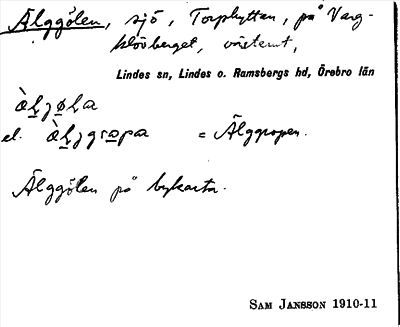 Älggölen, sjö, Torphyttan, på Varg-
klövberget, västerut,
Lindes sn, Lindes o. Ramsbergs hd, Örebro län
el. = Älggropen.
Älggölen på bykarta.
SAM JANSSON 1910-11